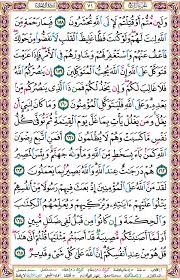 ٧١
وَلَئِن مُّتُّمْ أَوْ قُتِلْتُمْ لَإِلَى ٱللَّهِ تُحْشَرُونَ ١٥٨ فَبِمَا رَحْمَةٍ
مِّنَ ٱللَّهِ لِنتَ لَهُمْ وَلَوْ كُنتَ فَظًّا غَلِيظَ ٱلْقَلْبِ لَٱنفَضُّوا۟ مِنْ حَوْلِكَ
فَٱعْفُ عَنْهُمْ وَٱسْتَغْفِرْ لَهُمْ وَشَاوِرْهُمْ فِى ٱلْأَمْرِ فَإِذَا عَزَمْتَ
فَتَوَكَّلْ عَلَى ٱللَّهِ إِنَّ ٱللَّهَ يُحِبُّ ٱلْمُتَوَكِّلِينَ ١٥٩ إِن يَنصُرْكُمُ ٱللَّهُ
فَلَا غَالِبَ لَكُمْ وَإِن يَخْذُلْكُمْ فَمَن ذَا ٱلَّذِى يَنصُرُكُم مِّنۢ
بَعْدِهِۦ وَعَلَى ٱللَّهِ فَلْيَتَوَكَّلِ ٱلْمُؤْمِنُونَ ١٦٠ وَمَا كَانَ لِنَبِىٍّ أَن
يَغُلَّ وَمَن يَغْلُلْ يَأْتِ بِمَا غَلَّ يَوْمَ ٱلْقِيَٰمَةِ ثُمَّ تُوَفَّىٰ كُلُّ
نَفْسٍ مَّا كَسَبَتْ وَهُمْ لَا يُظْلَمُونَ ١٦١ أَفَمَنِ ٱتَّبَعَ رِضْوَٰنَ
ٱللَّهِ كَمَنۢ بَآءَ بِسَخَطٍ مِّنَ ٱللَّهِ وَمَأْوَىٰهُ جَهَنَّمُ وَبِئْسَ ٱلْمَصِيرُ
١٦٢ هُمْ دَرَجَٰتٌ عِندَ ٱللَّهِ وَٱللَّهُ بَصِيرٌۢ بِمَا يَعْمَلُونَ ١٦٣
لَقَدْ مَنَّ ٱللَّهُ عَلَى ٱلْمُؤْمِنِينَ إِذْ بَعَثَ فِيهِمْ رَسُولًا مِّنْ أَنفُسِهِمْ
يَتْلُوا۟ عَلَيْهِمْ ءَايَٰتِهِۦ وَيُزَكِّيهِمْ وَيُعَلِّمُهُمُ ٱلْكِتَٰبَ
وَٱلْحِكْمَةَ وَإِن كَانُوا۟ مِن قَبْلُ لَفِى ضَلَٰلٍ مُّبِينٍ ١٦٤
أَوَلَمَّآ أَصَٰبَتْكُم مُّصِيبَةٌ قَدْ أَصَبْتُم مِّثْلَيْهَا قُلْتُمْ أَنَّىٰ هَٰذَا
قُلْ هُوَ مِنْ عِندِ أَنفُسِكُمْ إِنَّ ٱللَّهَ عَلَىٰ كُلِّ شَىْءٍ قَدِيرٌ ١٦٥